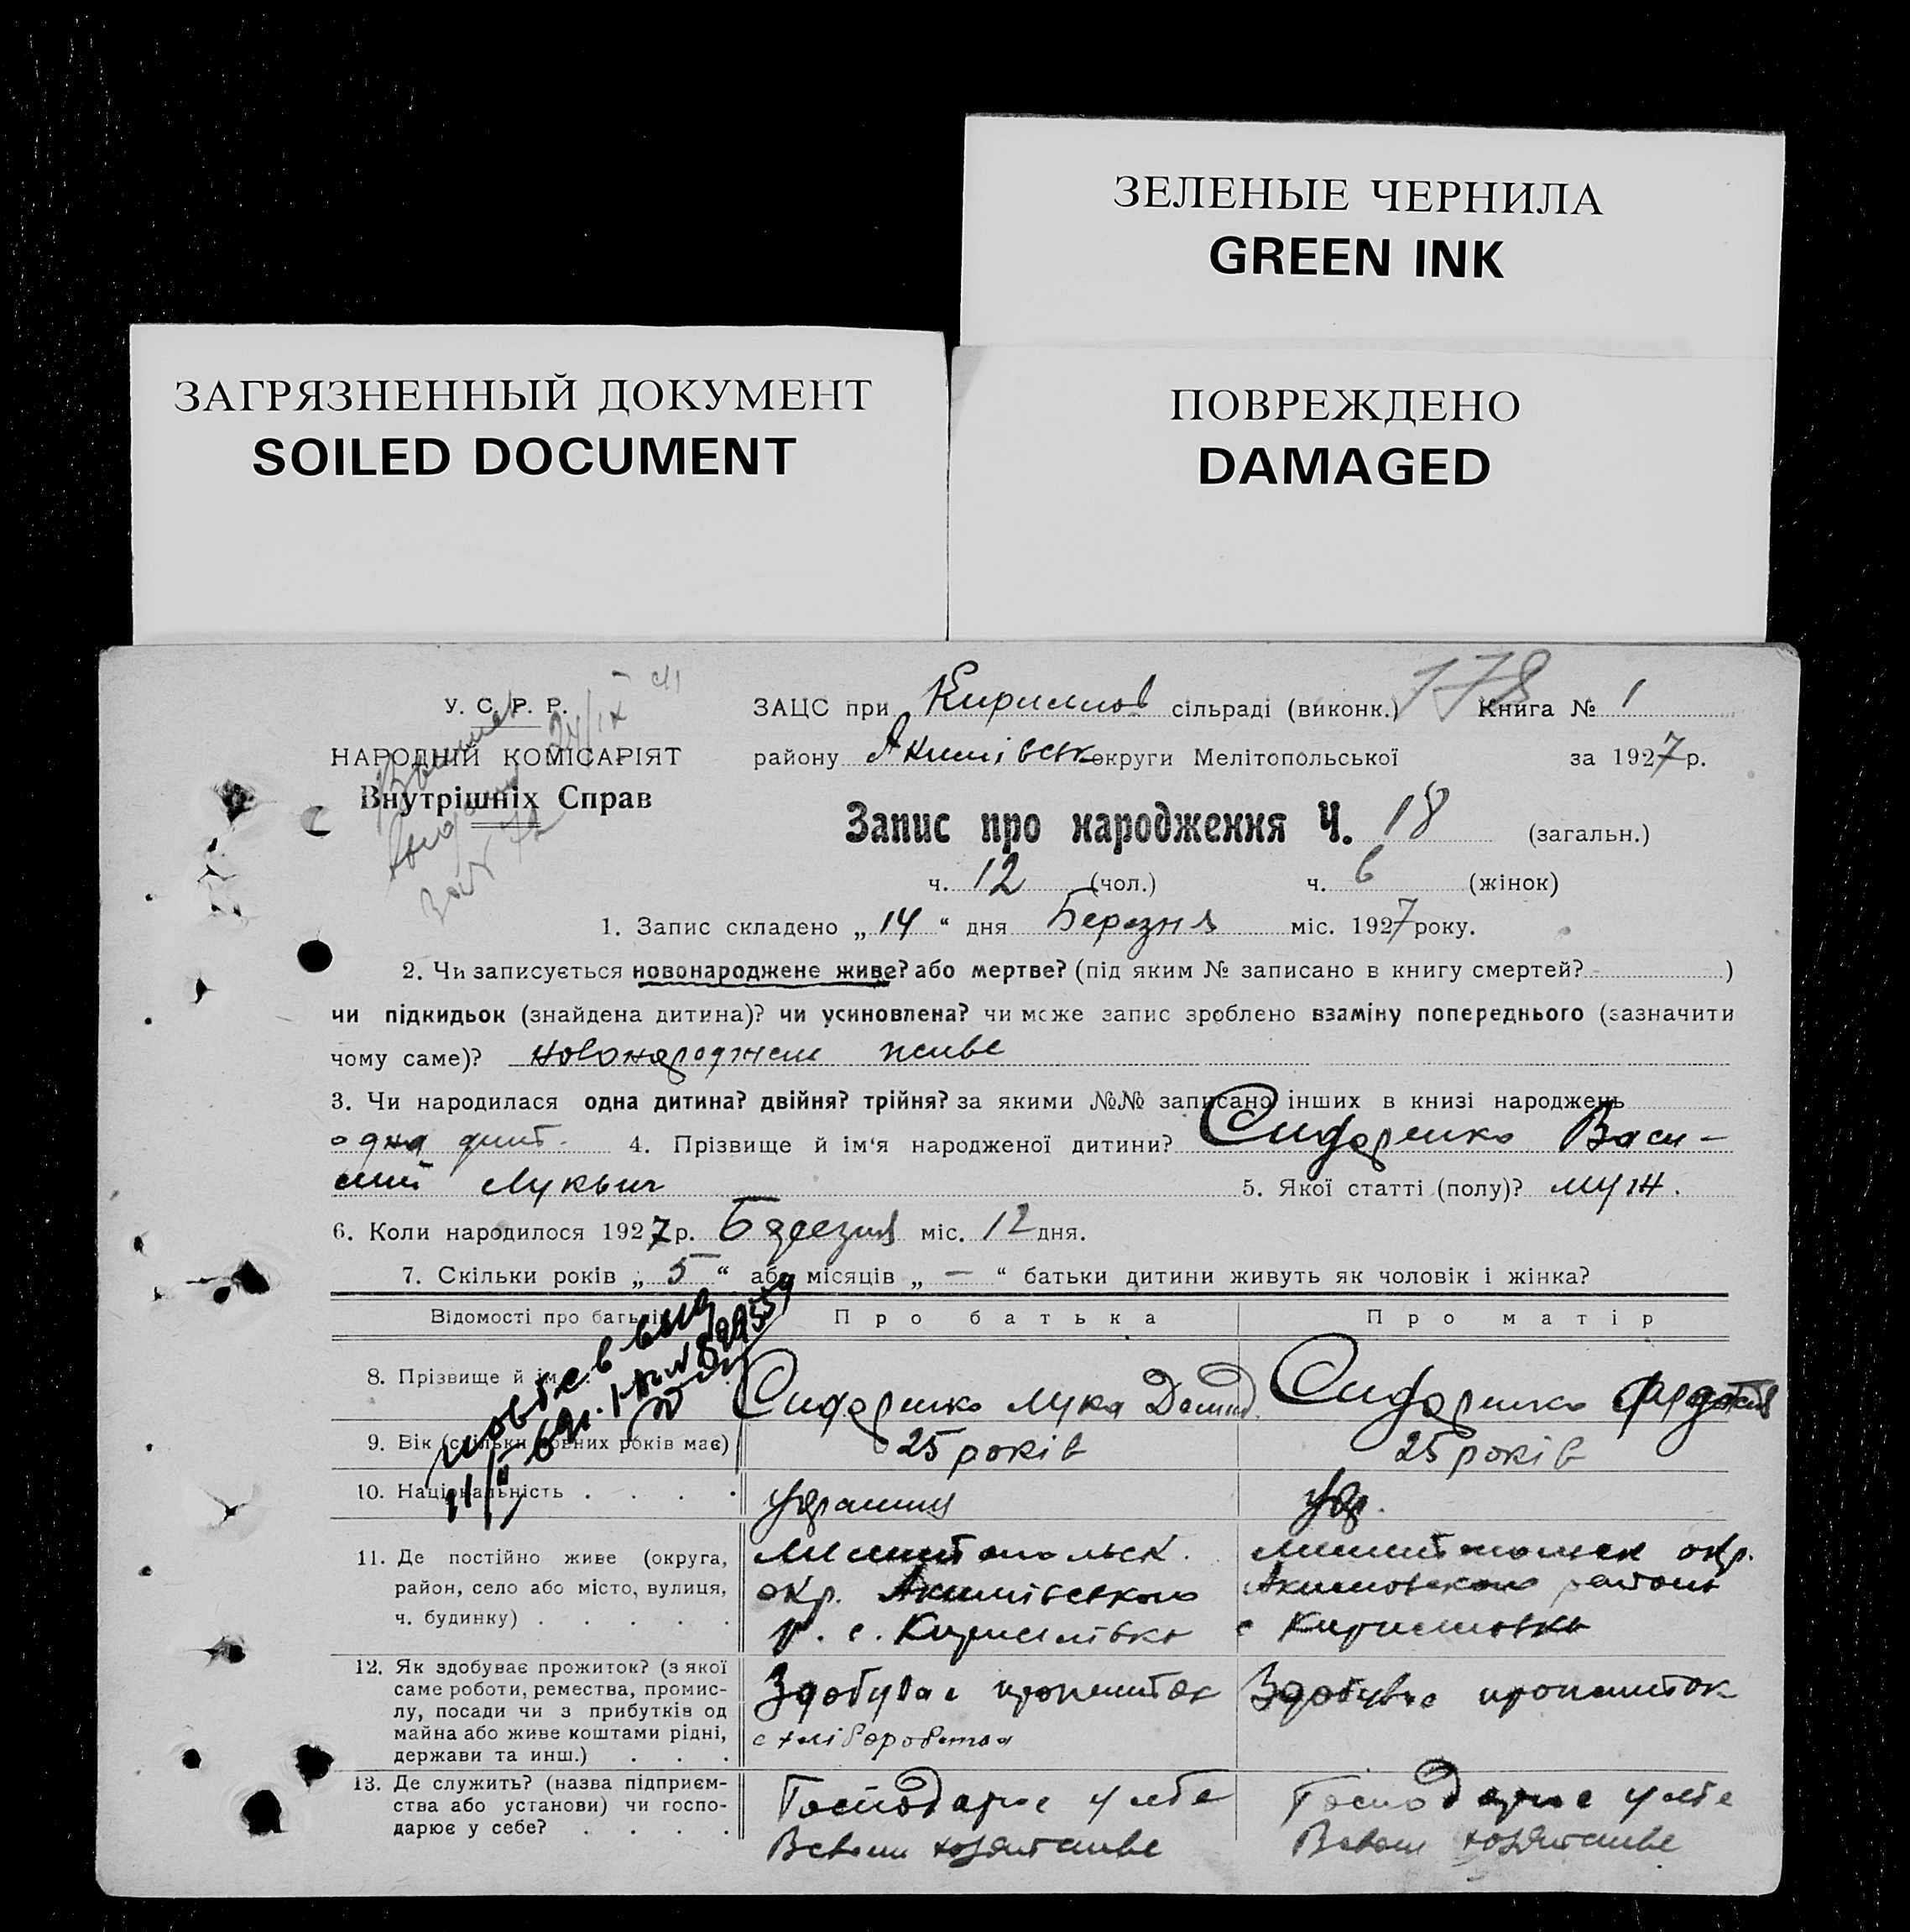 ЗЕЛЕНЫЕ ЧЕРНИЛА
GREEN INK
ЗАГРЯЗНЕННЫЙ ДОКУМЕНТ
SOILED DOCUMENT
ПОВРЕЖДЕНО
DAMAGED
У. С. Р. Р.
НАРОДНІЙ КОМІСАРІЯТ
Внутрішніх Справ
178
ЗАЦС при Кирилов сільраді (виконк.) Книга № 1
району Якимівськ округи Мелітопольської за 1927 р.
Запис про народження Ч. 18 (загальн.)
ч. 12 (чол.) ч. 6 (жінок)
1. Запис складено „ 14 “ дня Березня міс. 1927 року.
2. Чи записується новонароджене живе? або мертве? (під яким № записано в книгу смертей? - )
чи підкидьок (знайдена дитина)? чи усиновлена? чи може запис зроблено взаміну попереднього (зазначити
чому саме)? новонароджене живе
3. Чи народилася одна дитина? двійня? трійня? за якими №№ записано інших в книзі народжень
одна дит. 4. Прізвище й ім‘я народженої дитини? Сидоренко Васи-
лий Лукьич 5. Якої статті (полу)? муж.
6. Коли народилося 1927 р. Березня міс. 12 дня.
7. Скільки років „ 5 “ або місяців „ — “ батьки дитини живуть як чоловік і жінка?
Відомості про батьків Про батька Про матір
8. Прізвище й ім Сидоренко Лука Демид. Сидоренко
9. Вік (скільки повних років має) 25 років 25 років
10. Національність . . . . украинц укр.
11. Де постійно живе (округа, район, село або місто, вулиця, ч. будинку) . . . . .
Мелитопольск. окр. Акимівського р. с. Кирилівка
Мелитопольск окр. Акимовского района с Кириловка
12. Як здобуває прожиток? (з якої саме роботи, ремества, промислу, посади чи з прибутків од майна або живе коштами рідні, держави та инш.) . . .
Здобувае прожиток с хліборобства
Здобувае прожиток
13. Де служить? (назва підприємства або установи) чи господарює у себе? . . . .
Господарює у себе В свом хозяйстве
Господарює у себе В свом хозяйстве